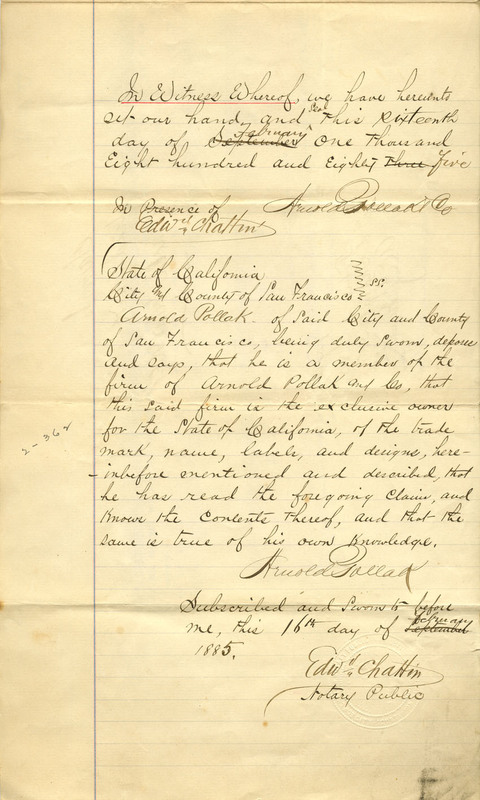 In Witness Whereof, we have hereunto
set our hand and seal this sixteenth
day of September February One thousand
Eight hundred and Eighty three five
In Presence of Arnold Pollak & Co
Edwd Chattin
State of California
City and County of San Francisco } SS.
Arnold Pollak of said City and County
of San Francisco, being duly sworn, deposes
and says, that he is a member of the
firm of Arnold Pollak and Co, that
this said firm is the exclusive owner
for the State of California, of the trade
mark, name, labels, and designs, here-
inbefore mentioned and described, that
he has read the foregoing claim, and
knows the contents thereof, and that the
same is true of his own knowledge.
Arnold Pollak
Subscribed and Sworn to before
me, this 16th day of September February
1885.
Edwd Chattin
Notary Public
2-362